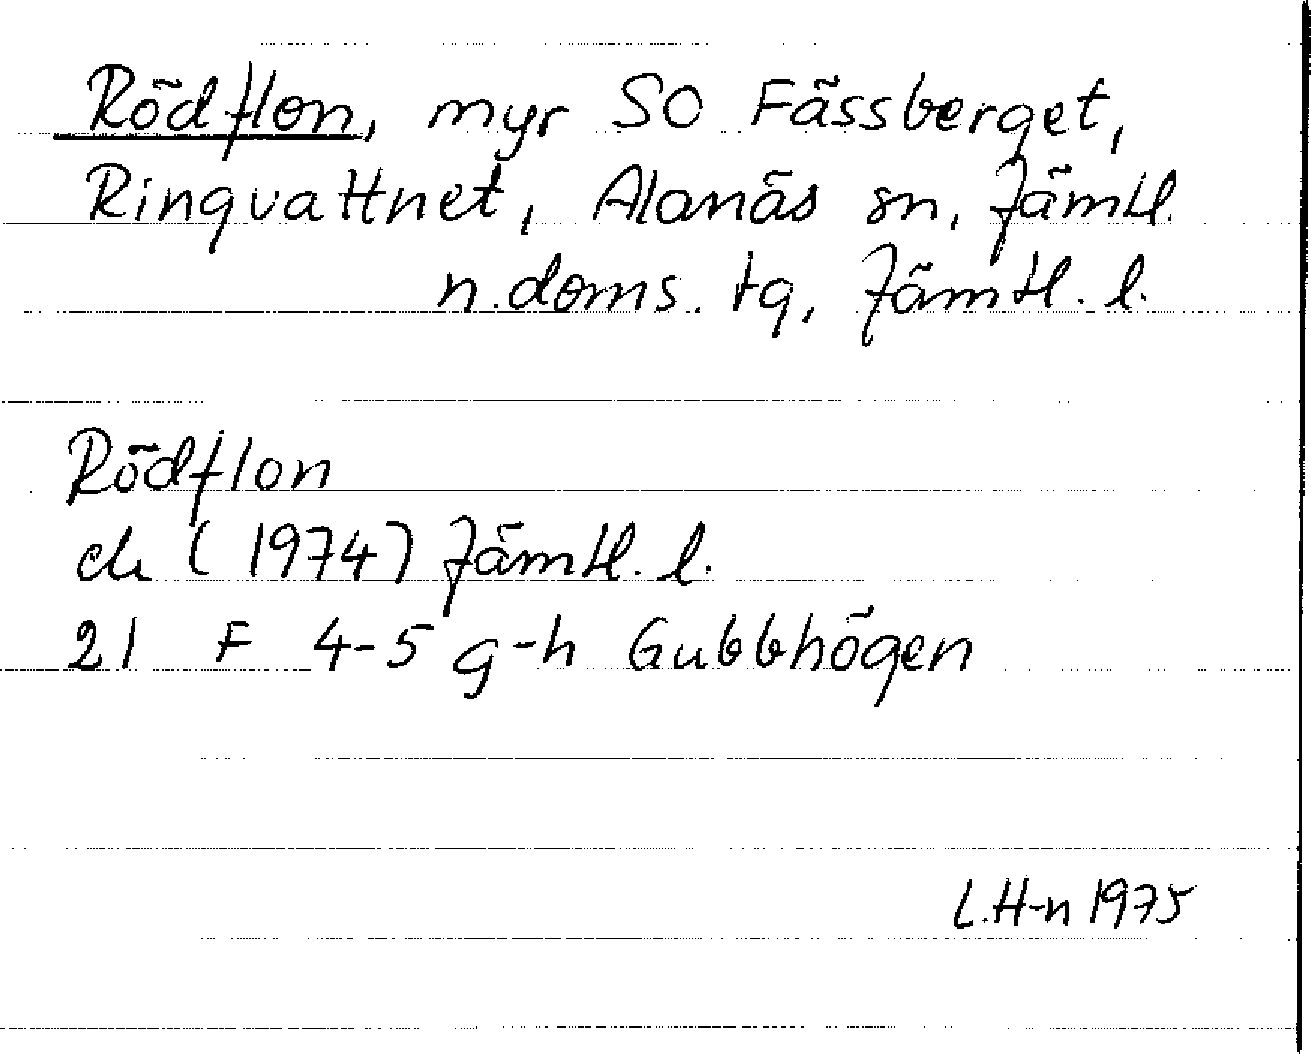 Rödflon, myr SO Fässberget,
Ringvattnet, Alanäs sn, Jämtl.
n. doms. tg, Jämtl. l.
Rödflon
ek (1974) Jämtl. l.
21 F 4-5 g-h Gubbhögen
L.H-n 1975